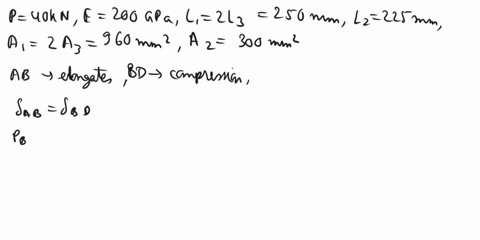 P=40kN, E=200 GPa, L₁=2L₃ =250 mm, L₂=225 mm,
A₁=2A₃=960 mm², A₂= 300 mm²
AB → elongates, BD → compression,
δ_AB = δ_BD
P_B